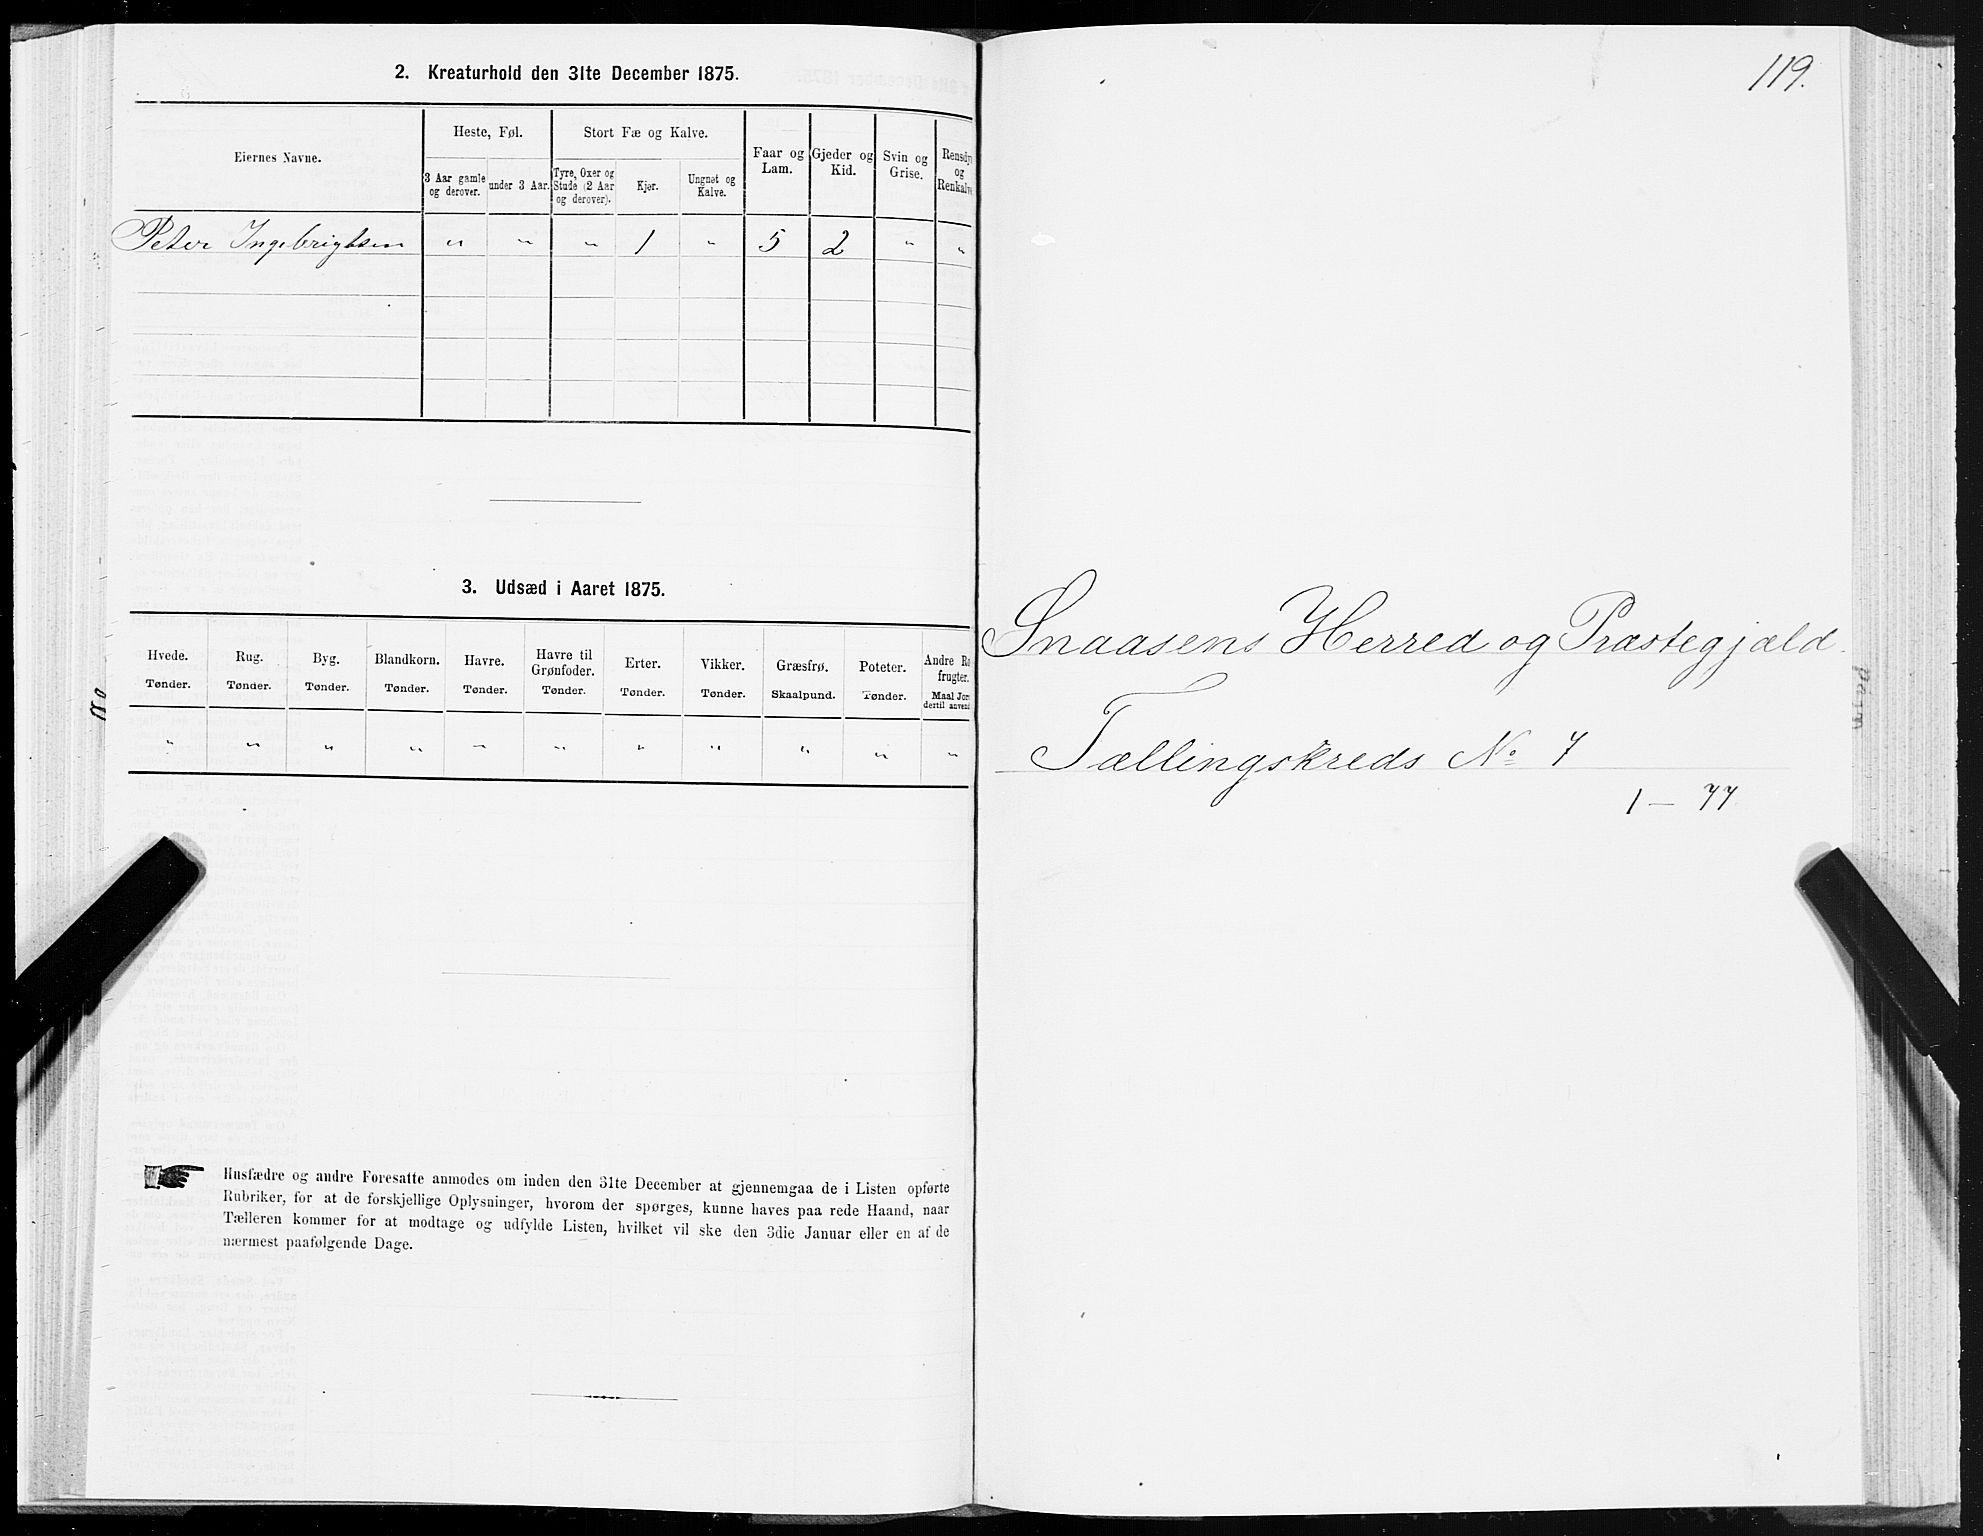 2. Kreaturhold den 31te December 1875.
Eiernes Navne.
Heste, Føl.
Stort Fæ og Kalve.
3 Aar gamle og derover.
under 3 Aar.
Tyre, Oxer og Stude (2 Aar og derover).
Kjør.
Ungnøt og Kalve.
Faar og Lam.
Gjeder og Kid.
Svin og Grise.
Rensdyr og Renkalve
Peter Ingebrigtsen " " " 1 " 5 2 " "
3. Udsæd i Aaret 1875.
Hvede. Tønder.
Rug. Tønder.
Byg. Tønder.
Blandkorn. Tønder.
Havre. Tønder.
Havre til Grønfoder. Tønder.
Erter. Tønder.
Vikker. Tønder.
Græsfrø. Skaalpund.
Poteter. Tønder.
Andre Ro frugter. Maal Jor dertil anvend
" " " " " " " " " " "
Husfædre og andre Foresatte anmodes om inden den 31te December at gjennemgaa de i Listen opførte
Rubriker, for at de forskjellige Oplysninger, hvorom der spørges, kunne haves paa rede Haand, naar
Tælleren kommer for at modtage og udfylde Listen, hvilket vil ske den 3die Januar eller en af de
nærmest paafølgende Dage.
119.
Snaasens Herred og Præstegjæld.
Tællingskreds No 7
1 — 77